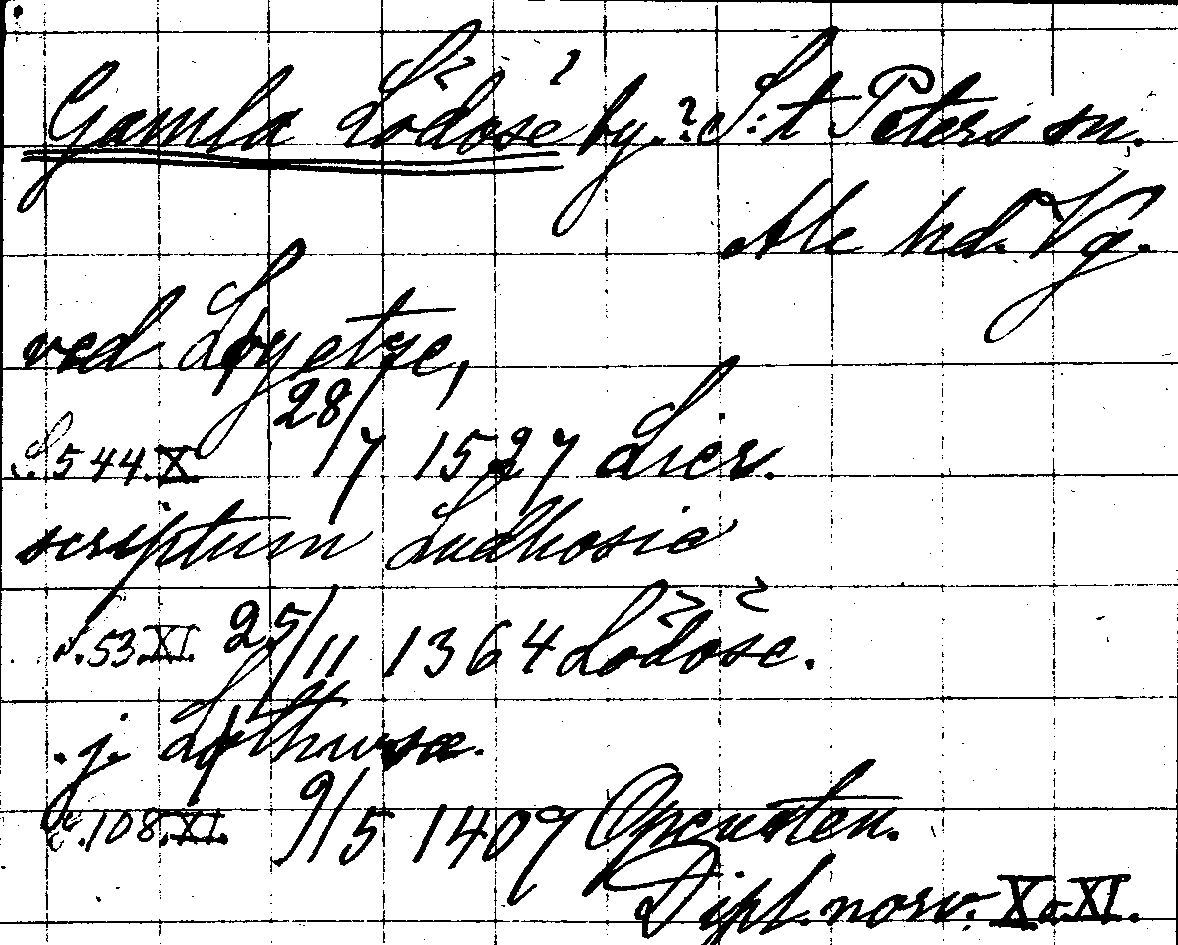 Gamla Lödöse by.? S:t Peters sn.
Ale hd. Vg.
ved Løgetze,
S.544.X. 28/7 1527 Lier.
scriptum Ludhosie
S.53.XI. 25/11 1364 Lödöse.
.j. Løthwsæ.
S.108.XI. 9/5 1407
Dipl. norv. X o XI.